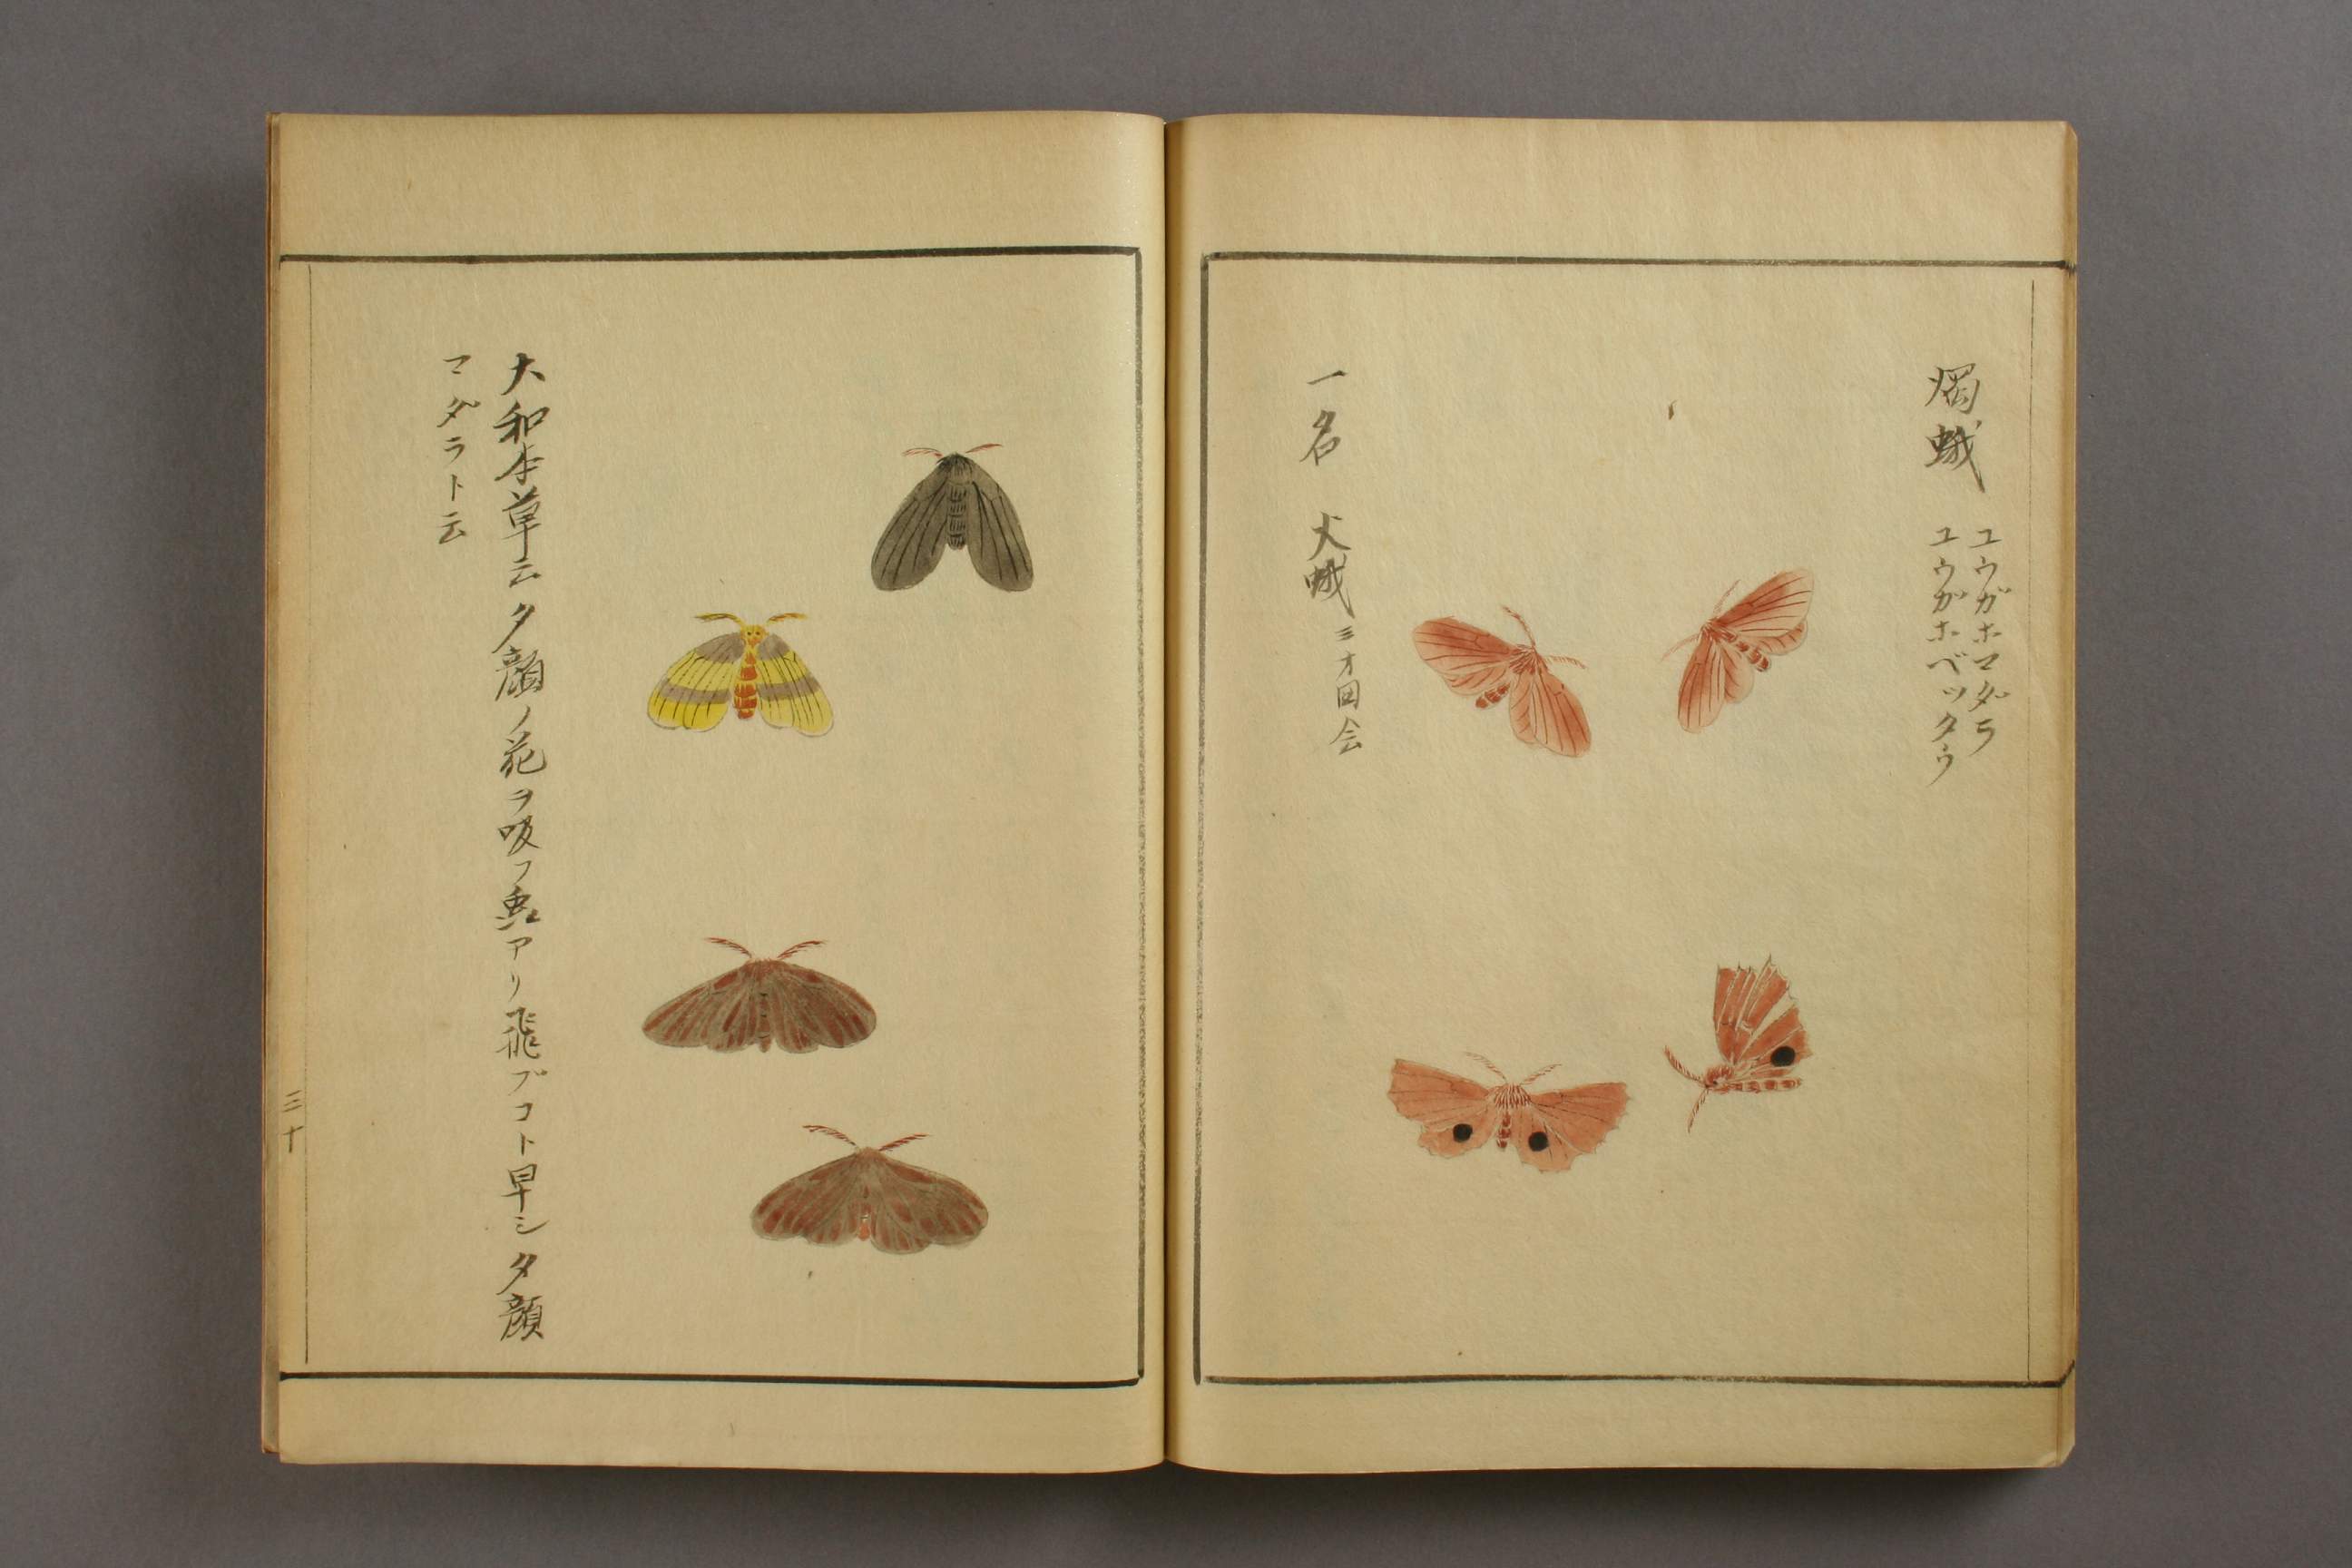 燭蛾
ユウガホマダラ
ユウガホベツタウ
一名 火蛾 三才図会
大和本草云夕顔ノ花ヲ吸フ䖝アリ飛ブコト早シ夕顔
マダラト云
三十